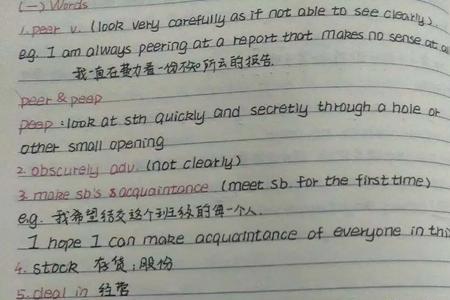 (一) Words
1. peer v. (look very carefully as if not able to see clearly).
eg. I am always peering at a report that makes no sense at al
我一直在费力看一份不知所云的报告.
peer & peep
peep: look at sth quickly and secretly through a hole or
other small opening
2. obscurely adv. (not clearly)
3. make sb's acquaintance (meet sb. for the first time)
e.g. 我希望结交这个班级的每一个人.
I hope I can make acquaintance of everyone in this
4. stock 存货;股份
5. deal in 经营